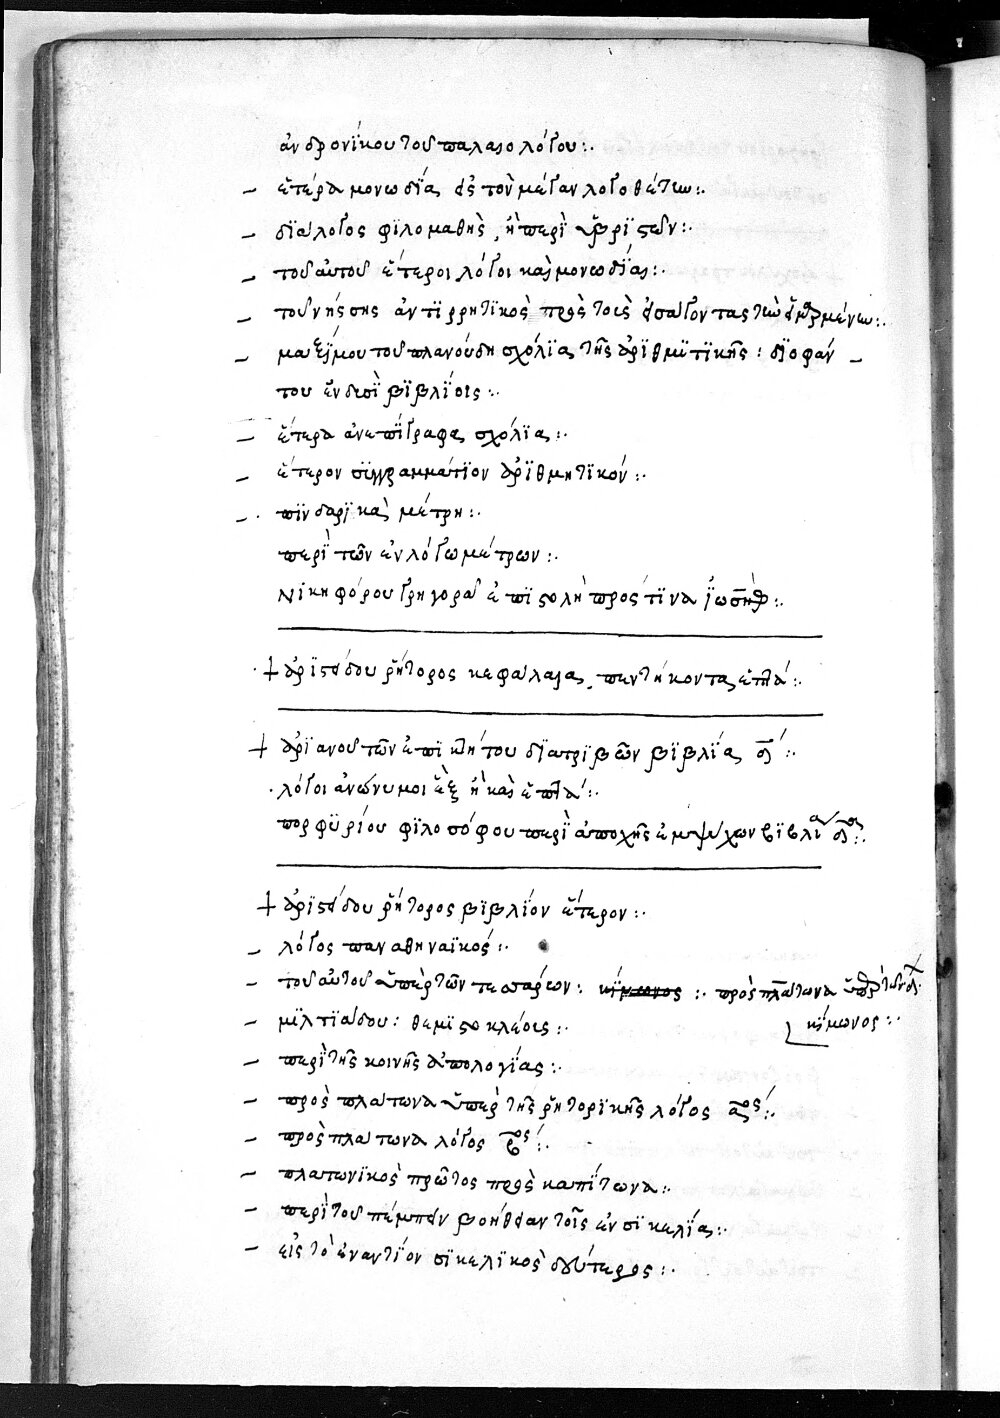 ἀνδρονίκου τοῦ παλαιολόγου:.
– ἕτέρα μονωδΐα εἰς τὸν μέγαν λογοθέτην:.
– δϊάλογος φϊλομαθὴς, ἢ περὶ ὑβρϊστῶν:.
– τοῦ αὐτοῦ ἕτεροι λόγοι καὶ μονωδΐαι:.
– τοῦ νήσσης ἀντϊρρητϊκὸς πρὸς τοὺς
– μαξΐμου τοῦ πλανούδη σχόλϊα τῆς ἀρϊθμϊτϊκῆς: δϊοφάν –
του ἐν δυσὶ βϊβλΐοις:.
– ἕτερα ἀνεπΐγραφα σχόλϊα:.
– ἕτερον σϊγγραμμάτϊον ἀρϊθμητϊκόν:.
– . πϊνδαρϊκὰ μέτρη:.
περὶ τῶν ἐν λόγω μέτρων:.
Νϊκηφόρου γρηγορᾶ ἐπϊστολὴ πρός τϊνα ϊωσὴφ:.
+ ἀρϊστείδου ῥήτορος κεφάλαια πεντήκοντα ἑπτά:.
+ ἀρϊανοῦ τῶν ἐπϊκτήτου δϊατρϊβῶν βϊβλΐα δ΄:.
. λόγοι ἀνώνυμοι ἓξ ἢ καὶ ἑπτά:.
πορφϋρΐου φϊλοσόφου περὶ ἀποχῆς ἐμψύχων βϊβλΐα δ:.
+ ἀρϊστείδου ῥήτορος βϊβλΐον ἕτερον:.
– λόγος παναθηναϊκός:.
– τοῦ αὐτοῦ ὑπὲρ τῶν τεσσάρων: κΐμωνος:. πρὸς πλάτωνα ὑπὲρ τῶν δ
κΐμωνος:.
– μϊλτϊάδου: θεμϊστοκλέους:.
– περὶ τῆς κοινῆς ἀπολογΐας:.
– πρὸς πλάτωνα ὑπὲρ τῆς ῥητορϊκῆς λόγος α^ος:.
– πρὸς πλάτωνα λόγος β^ος:.
– πλατωνϊκὸς πρῶτος πρὸς καπΐτωνα:.
– περὶ τοῦ πέμπειν βοήθειαν τοῖς ἐν σϊκελΐα:.
– εἰς τὸ ἐναντΐον σϊκελϊκὸς δεύτερος:.